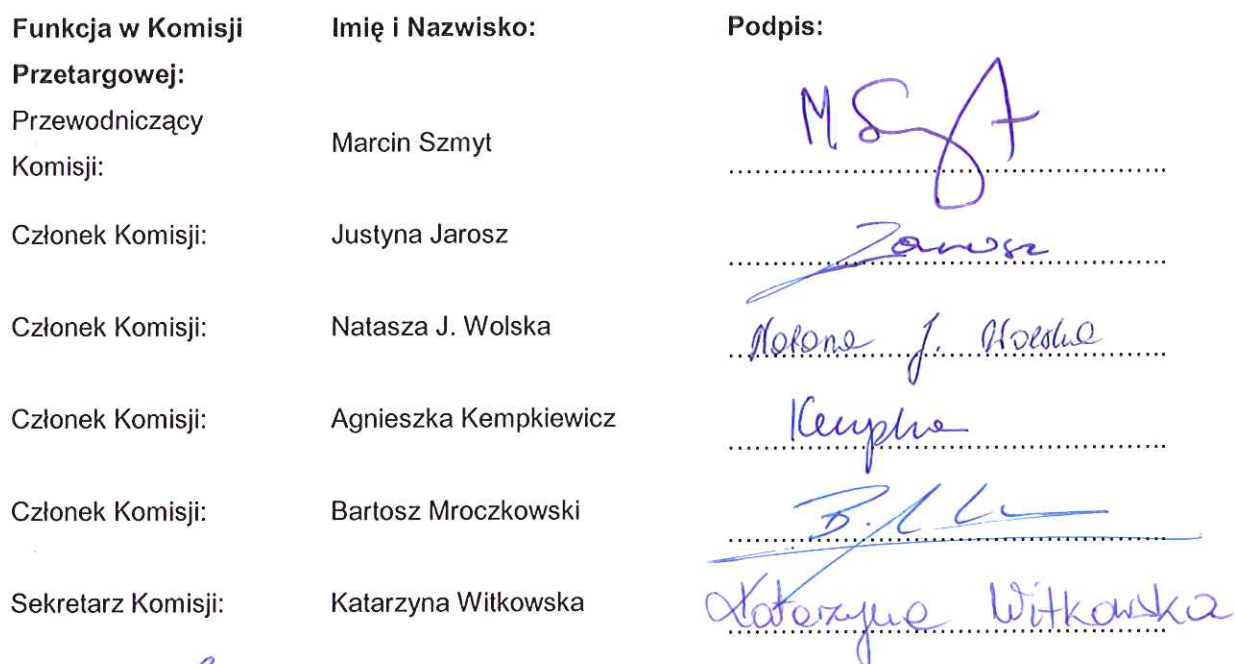 Funkcja w Komisji Przetargowej: Imię i Nazwisko: Podpis:
Przewodniczący Komisji: Marcin Szmyt M Szmyt
Członek Komisji: Justyna Jarosz Jarosz
Członek Komisji: Natasza J. Wolska Natasza J. Wolska
Członek Komisji: Agnieszka Kempkiewicz
Członek Komisji: Bartosz Mroczkowski B.
Sekretarz Komisji: Katarzyna Witkowska Katarzyna Witkowska